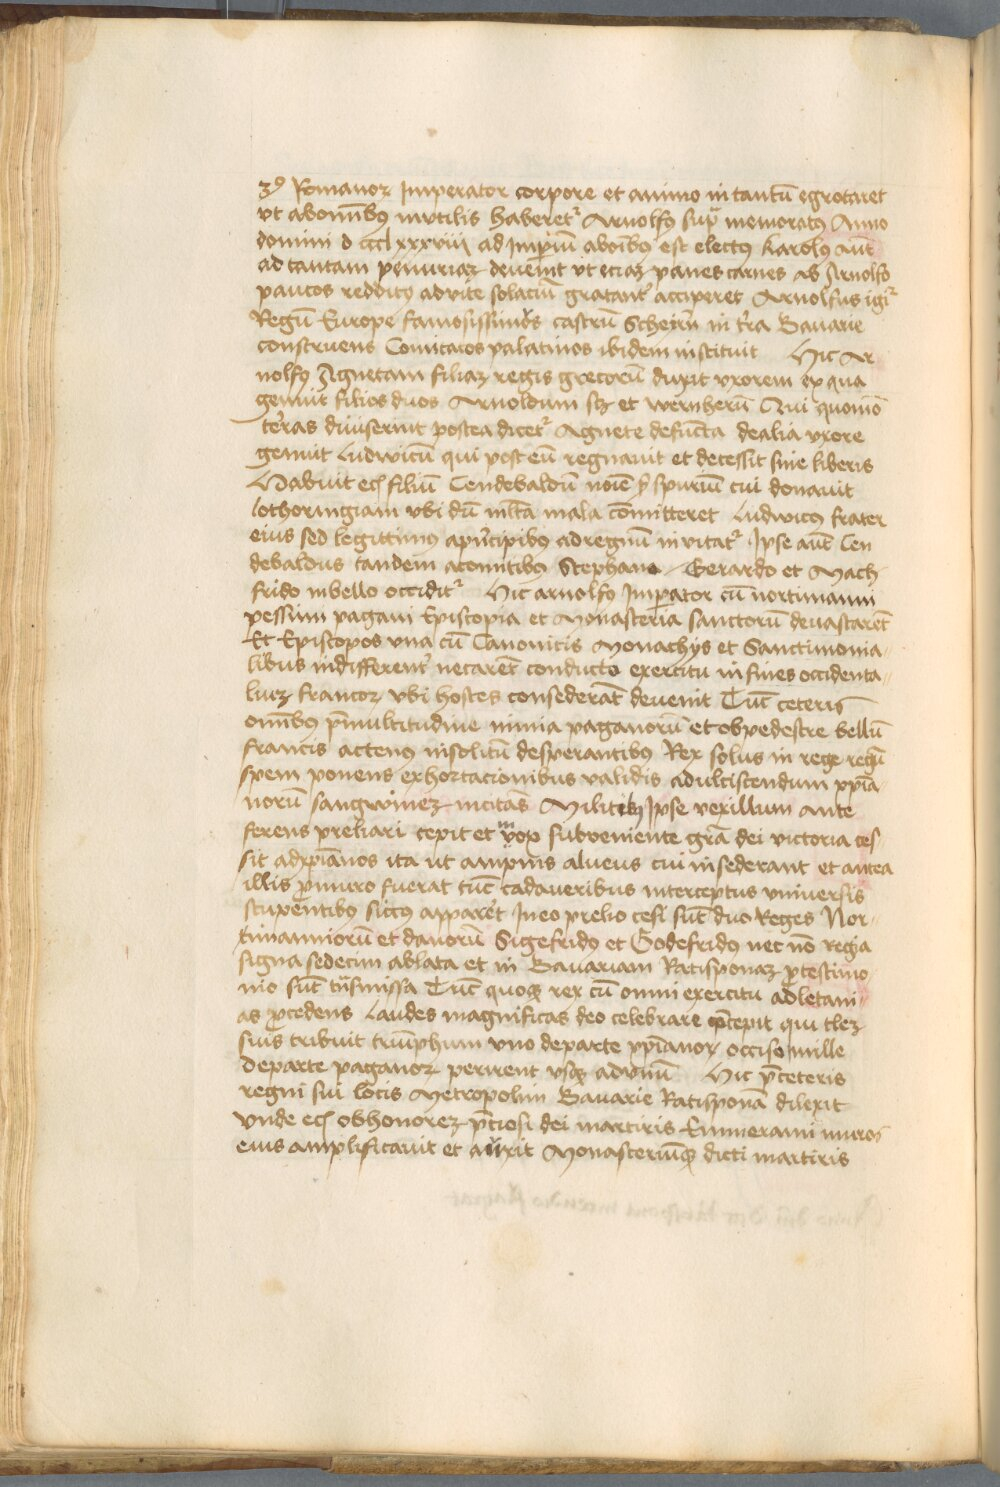 3⁹ Romanoꝝ Imperator corpore et animo in tantū egrotaret
vt abomībꝰ inutilis haberetᷣ Arnolfꝰ supͣ memoratꝰ Anno
domini d ccc lxxxviij ad Imperiū aboībꝰ est electus Karolꝰ aūt
ad tantam penuriaꝫ devenit vt eciaꝫ panes carnes ab Arnolfo
paucos redditꝰ ad vite solaciū gratantᷣ acciperet Arnolfus igiᷣ
Regū Europe famosissimus castrū Scheyrn in tᷣra Bauarie
construens Comitatos palatinos ibidem instituit Hic Ar
nolfꝰ Agnetam filiaꝫ regis grecorū duxit vxorem ex qua
genuit filios duos Arnoldum scꝫ et wernherū Qui quomō
tᷣras diuiserint postea dicetᷣ Agnete defūcta de alia vxore
genuit Ludwicū qui post eū regnauit et decessit sine liberis
Habuit ecꝫ filiū Cendebaldū noīe sꝫ spuriū cui donauit
lothoringiam vbi dū mlta mala cōmitteret Ludwicꝰ frater
eius sed legittimꝰ a pᷣncipibꝰ ad regnū invitatᷣ Ipse aūt Cen
debaldus tandem a comitibꝰ Stephano Gerardo et Mach
frido in bello occiditᷣ Hic arnolfꝰ Imperator cū nortimanni
pessimi pagani Episcopia et Monasteria sanctorū deuastarēt
Et Episcopos vna cū Canonicis Monachys et Sanctimonia
libus indifferentᷣ necarēt conducto exercitu in fines occidenta
liuꝫ francoꝝ vbi hostes consederāt devenit Tūc ceteris
omībꝰ p̄ multitudine nimia paganorū et ob pedestre bellū
francis actenꝰ insolitū desperantibꝰ Rex solus in rege regū
spem ponens exhortacionibus validis ad ulciscendum xp̄ia
norū sangwineꝫ incitās Milites Ipse vexillum ante
ferens preliari cepit et mox subveniente grā dei victoria ces
sit ad xp̄ianos ita ut ampnis alueus cui insederant et antea
illis p̄ muro fuerat tūc cadaveribus interceptus vniuersis
stupentibꝰ siccus apparēt In eo prelio cesi sūt duo Reges Nor
timanniorū et danorū Sigefridꝰ et Godefridꝰ nec nō regia
signa sedecim ablata et in Bauariam Ratisponaꝫ p̄ testimo
nio sūt trᷣnsmissa Tūc quoqꝫ rex cū omni exercitu ad letani
as p̄cedens Laudes magnificas deo celebrare cepit qui taleꝫ
suis tribuit triūphum vno de parte xp̄ianoꝝ occiso mille
de parte paganoꝝ perirent vsqꝫ ad vnū Hic p̄ ceteris
regni sui locis Metropolim Bauarie Ratisponā dilexit
Vnde ecꝫ ob honoreꝫ p̄ciosi dei martiris Emmerami muros
eius amplificauit et auxit Monasteriūqꝫ dicti martiris